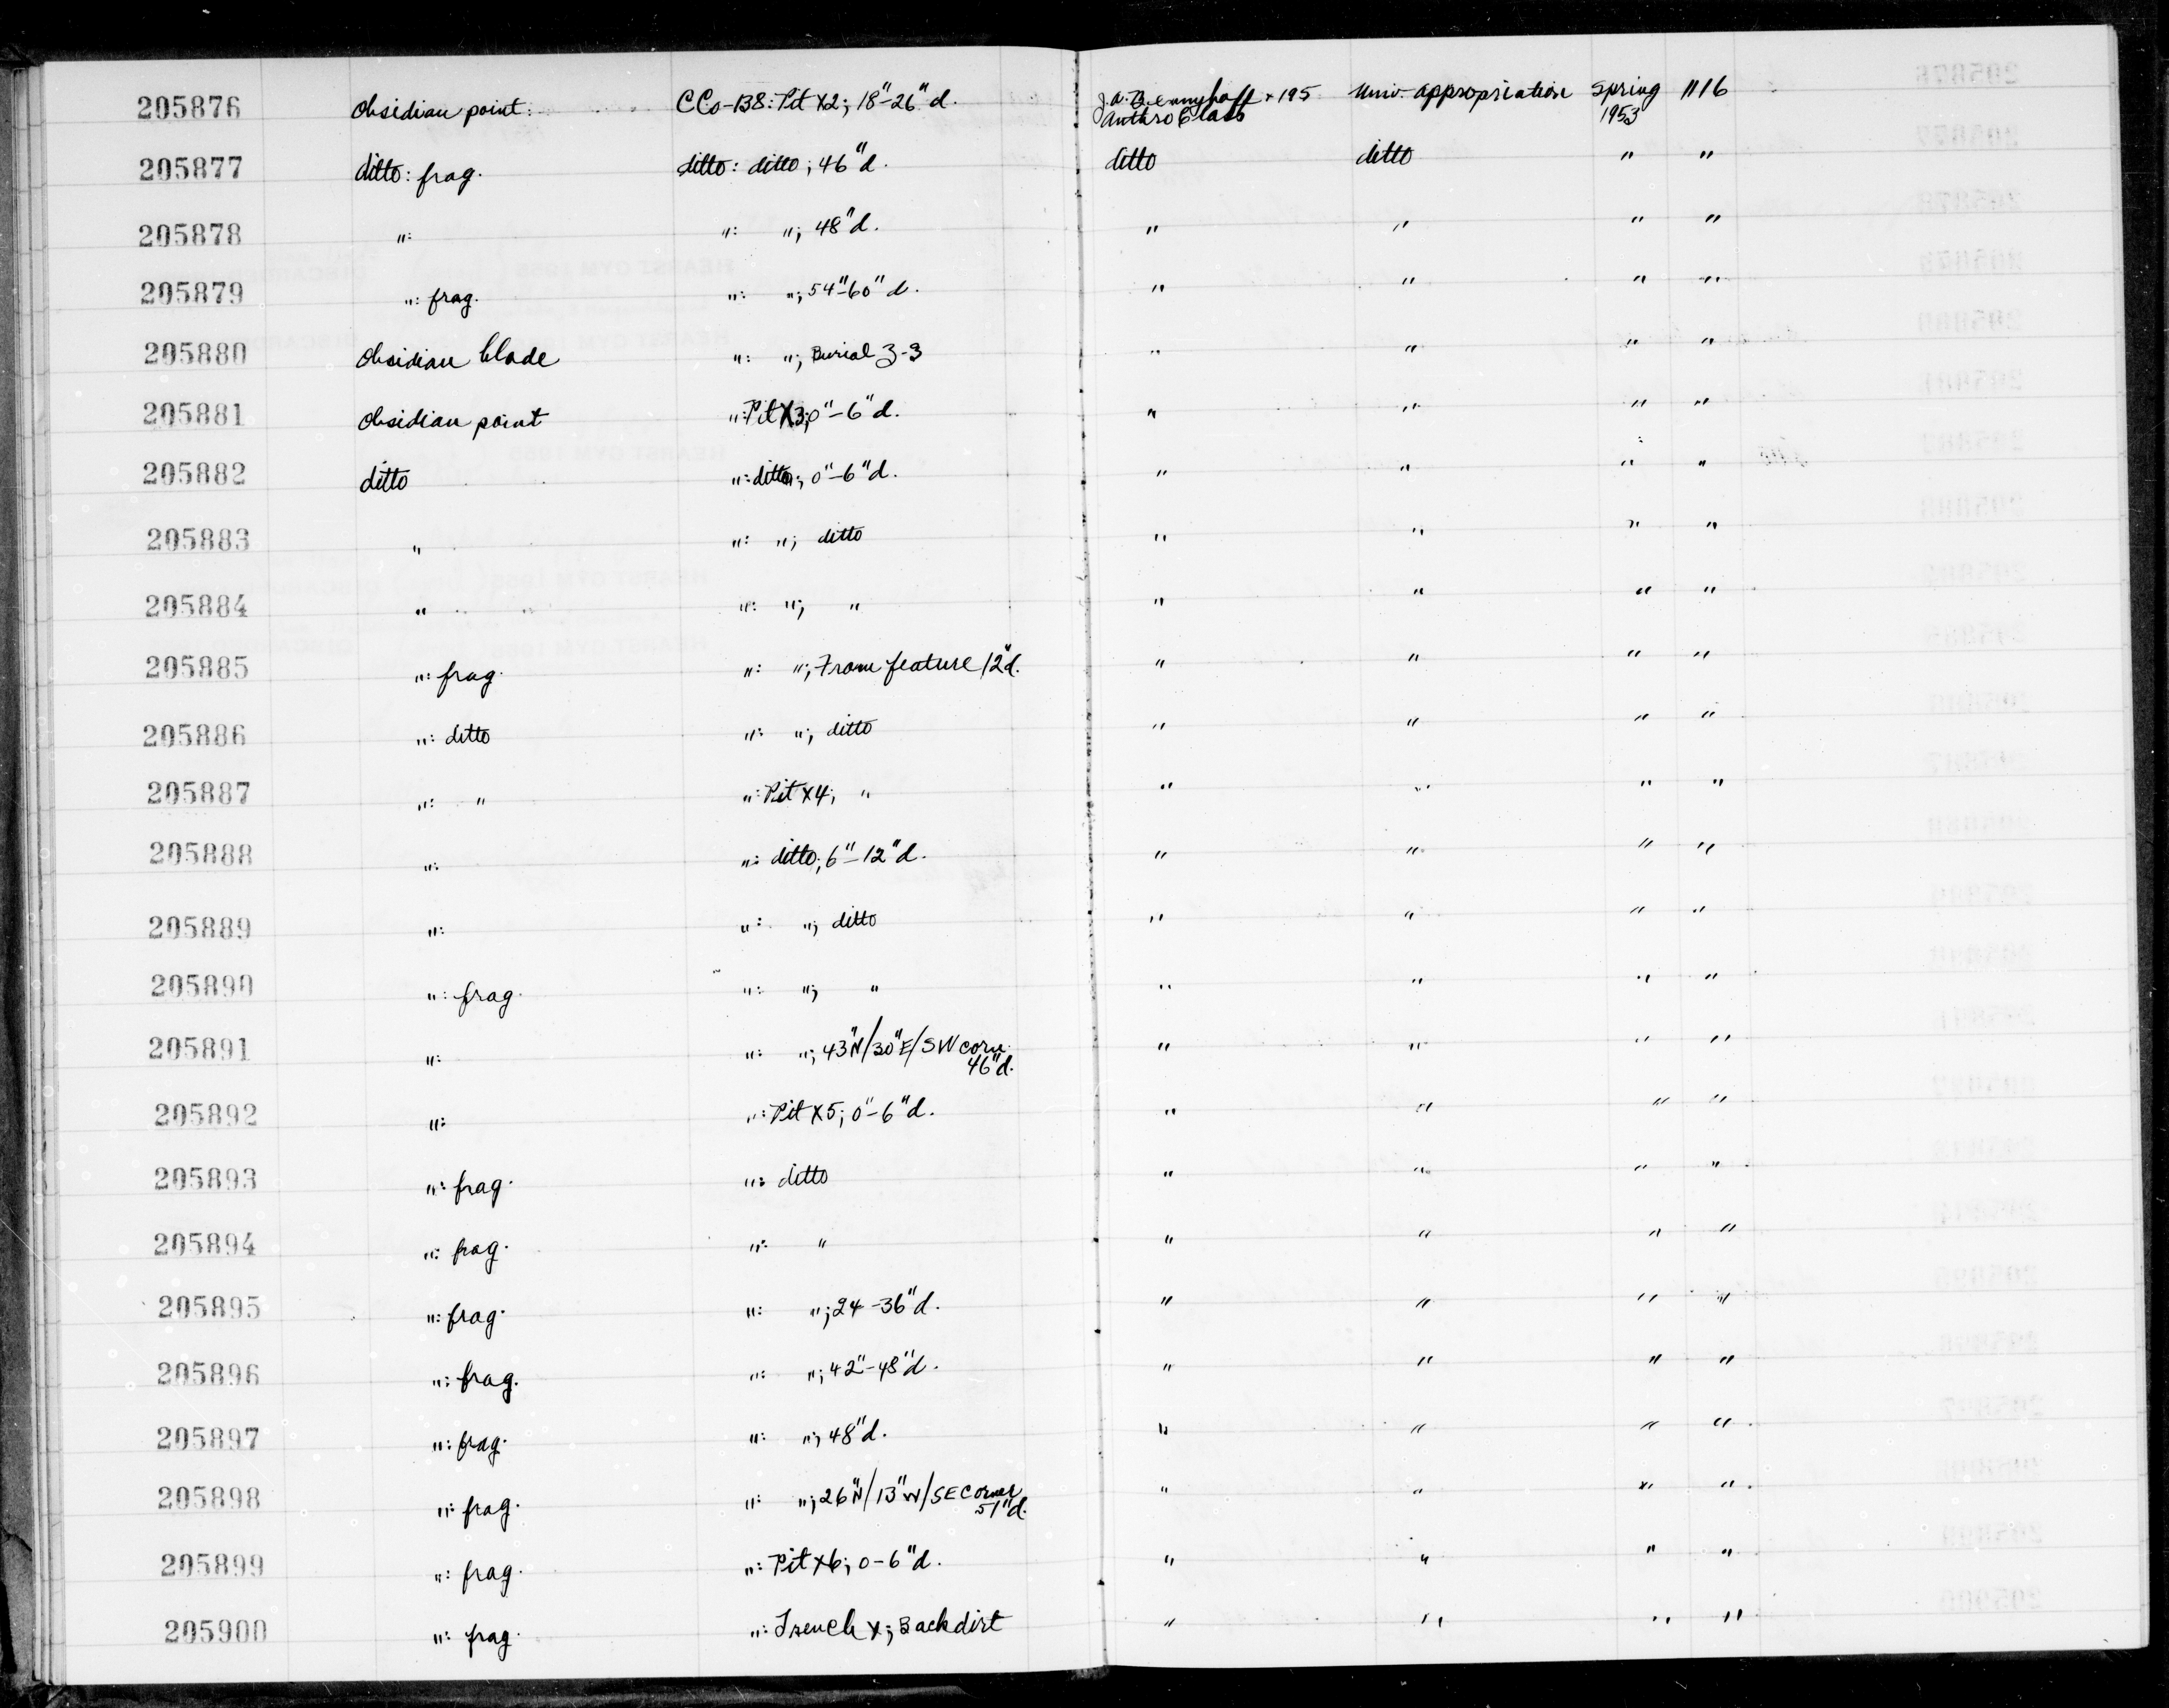 205876 Obsidian point: CCo-138: Pit X2; 18"-26" d. J.A. Bennyhoff + 195 Univ. appropriation Spring 1116
Anthro Class 1953
205877 ditto: frag. ditto: ditto; 46" d. ditto ditto " "
205878 ": ": "; 48" d. " " " "
205879 ": frag. ": "; 54"-60" d. " " " "
205880 Obsidian blade ": "; Burial 3-3 " " " "
205881 Obsidian point ": Pit X3; 0"-6" d. " " " "
205882 ditto ": ditto; 0"-6" d. " " " "
205883 " ": "; ditto " " " "
205884 " ": "; " " " " "
205885 ": frag. ": "; From feature 12" d. " " " "
205886 ": ditto ": "; ditto " " " "
205887 ": " ": Pit X4; " " " " "
205888 ": ": ditto; 6"-12" d. " " " "
205889 ": ": "; ditto " " " "
205890 ": frag. ": "; " " " " "
205891 ": ": "; 43"N/30"E/SW corn. " " " "
46" d.
205892 ": ": Pit X5; 0"-6" d. " " " "
205893 ": frag. ": ditto " " " "
205894 ": frag. ": " " " " "
205895 ": frag. ": "; 24-36" d. " " " "
205896 ": frag. ": "; 42"-48" d. " " " "
205897 ": frag. ": "; 48" d. " " " "
205898 ": frag. ": "; 26"N/13"W/SE Corner " " " "
51" d.
205899 ": frag. ": Pit X6; 0-6" d. " " " "
205900 ": frag. ": Trench X; Backdirt " " " "